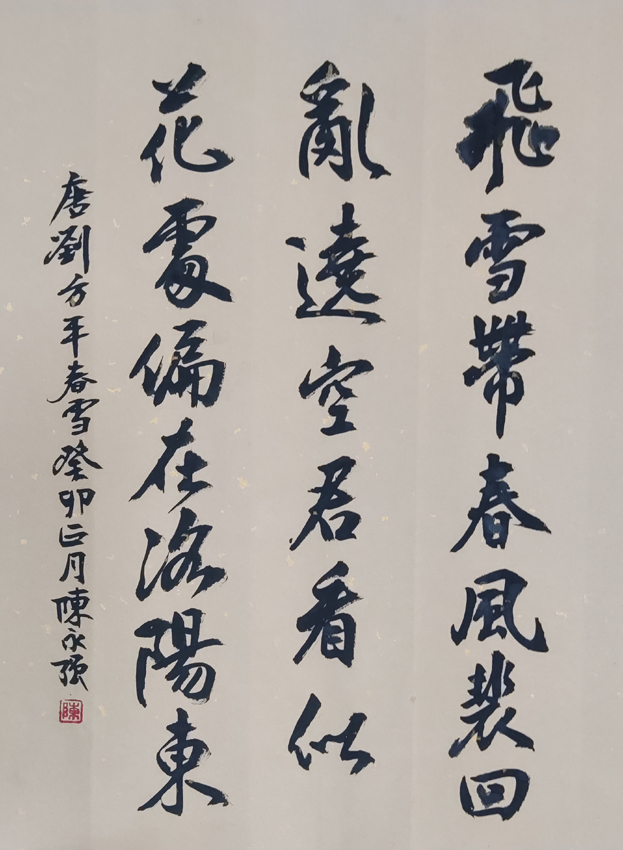 飛雪帶春風裴回
亂遶空君看似
花處偏在洛陽東
唐劉方平春雪癸卯正月陳永强
陳